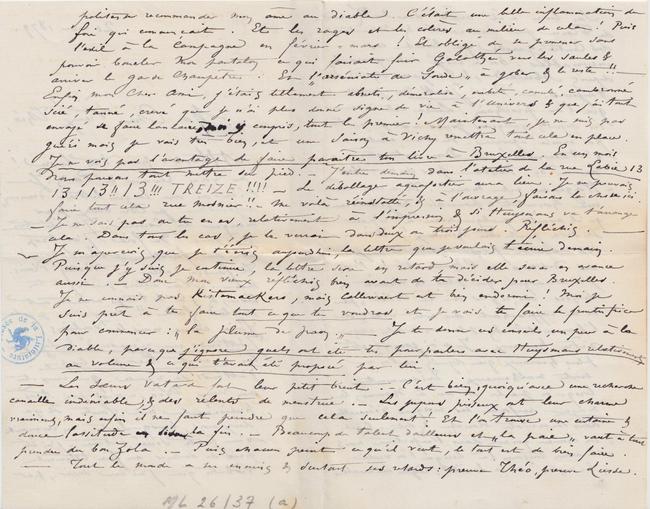 politesse recommander mon âme au diable. C'était une belle inflammation du
foie qui commençait. Et les rages et les colères au milieu de cela! Puis
l'exil à la campagne en février & mars! Et obligé de se promener sans
pouvoir boucler mon pantalon ce qui faisait fuir Galathée vers les saules &
arriver le garde champêtre. Et „l'arséniate de soude„ à gober & le reste!!—
Enfin mon cher ami, j'étais tellement abruti, démoralisé,
scié, tanné, crevé que je n'ai plus donné signe de vie à l'univers & que j'étais
envoyé de faire lanlaire, moi y compris, tout le premier! Maintenant, je ne suis pas
guéri mais je vais très bien, et une saison à Vichy remettra tout cela en place.
Je ne vois pas l'avantage de faire paraître ton livre à Bruxelles. En un mois
nous pouvons tout mettre sur pied. — J'entre demain dans l'atelier de la rue Labie 13
13! 13!! 13!!! TREIZE !!!! — Le déballage aura lieu. Je ne pouvais
faire tout cela rue Mosnier!! — Me voilà réinstallé, & à l'ouvrage,
— Je ne sais pas où tu en es, relativement à l'impression & si Huysmans va t'arranger
cela. Dans tous les cas, je le verrai dans deux ou trois jours. Réfléchis —
— Je m'aperçois que je t'écris aujourd'hui, la lettre que je voulais t'écrire demain.
Puisque j'y suis je continue, la lettre sera en retard mais elle sera en avance
aussi. — Donc mon vieux réfléchis bien avant de te décider pour Bruxelles.
Je ne connais pas Kistemaeckers, mais Callewaert est bien endormi! Moi je
suis prêt à te faire tout ce que tu voudras et je vais te faire le frontispice
pour commencer: „la plume de paon„ — Je te donne ces conseils, un peu à la
diable, parce que j'ignore quels ont été tes pourparlers avec Huysmans relativement
au volume & ce qui t'avait été proposé par lui.
— Les Sœurs Vatard font leur petit bruit. — C'est bien, quoiqu'avec une recherche
canaille indéniable, & des relents de menstrue. — Les jupons pisseux ont leur charme
vraiment, mais enfin il ne faut peindre que cela seulement! Et l'on trouve une certaine &
douce lassitude la fin. — Beaucoup de talent d'ailleurs et „la pae„ vaut à tout
prendre du bon Zola. — Puis chacun peint ce qu'il veut, le tout est de bien faire.
— Tout le monde a ses ennuis & surtout ses retards: preuve Théo, preuve Liesse.
ML 26/37 (a)